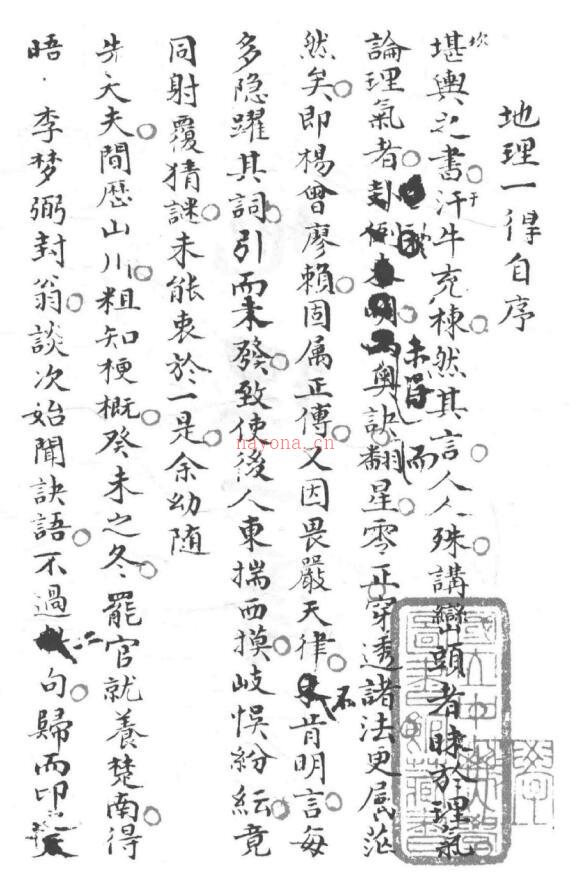 地理一得自序
堪輿之書汗牛充棟然其言人人殊講巒頭者昧於理氣
坎
于
論理氣者卦例未明而奥訣翻星零正穿透諸法更屬茫
未得
而
然矣即楊曾廖賴固属正傳又因畏嚴天律不肯明言每
多隐躍其詞引而未發致使後人東揣西摸岐悮紛紜竟
同射覆猜謎未能衷於一是余幼随
先大夫間歷山川粗知梗概癸未之冬罷官就養楚南得
晤李梦弼封翁談次始聞訣語不過一二句歸而印
nayona.cn